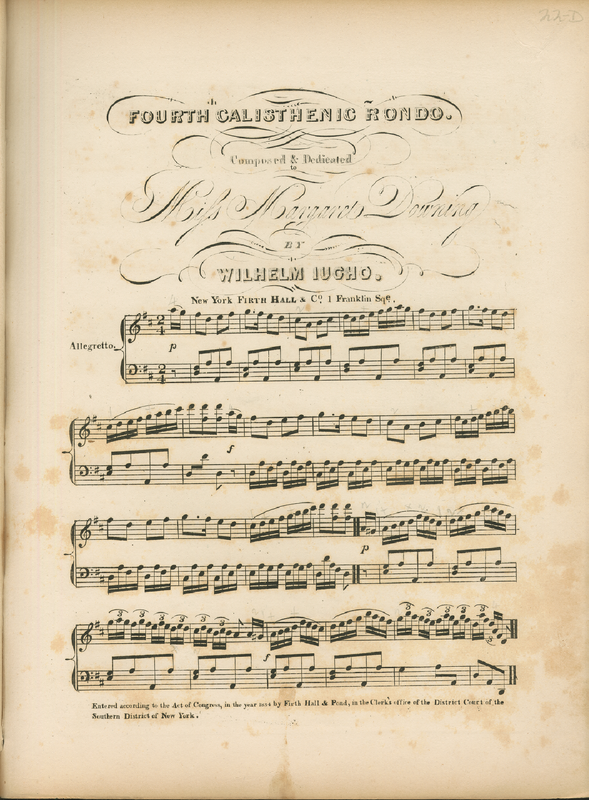 22-D
FOURTH CALISTHENIC RONDO.
Composed & Dedicated
to
Miss Margaret Downing
BY
WILHELM IUCHO.
New York FIRTH HALL & Co. 1 Franklin Sqe.
Allegretto.
p
f
p
3 3 3 3 3 3 3 3
f
Entered according to the Act of Congress, in the year by Firth Hall & Pond, in the Clerk's office of the District Court of the
Southern District of New York.